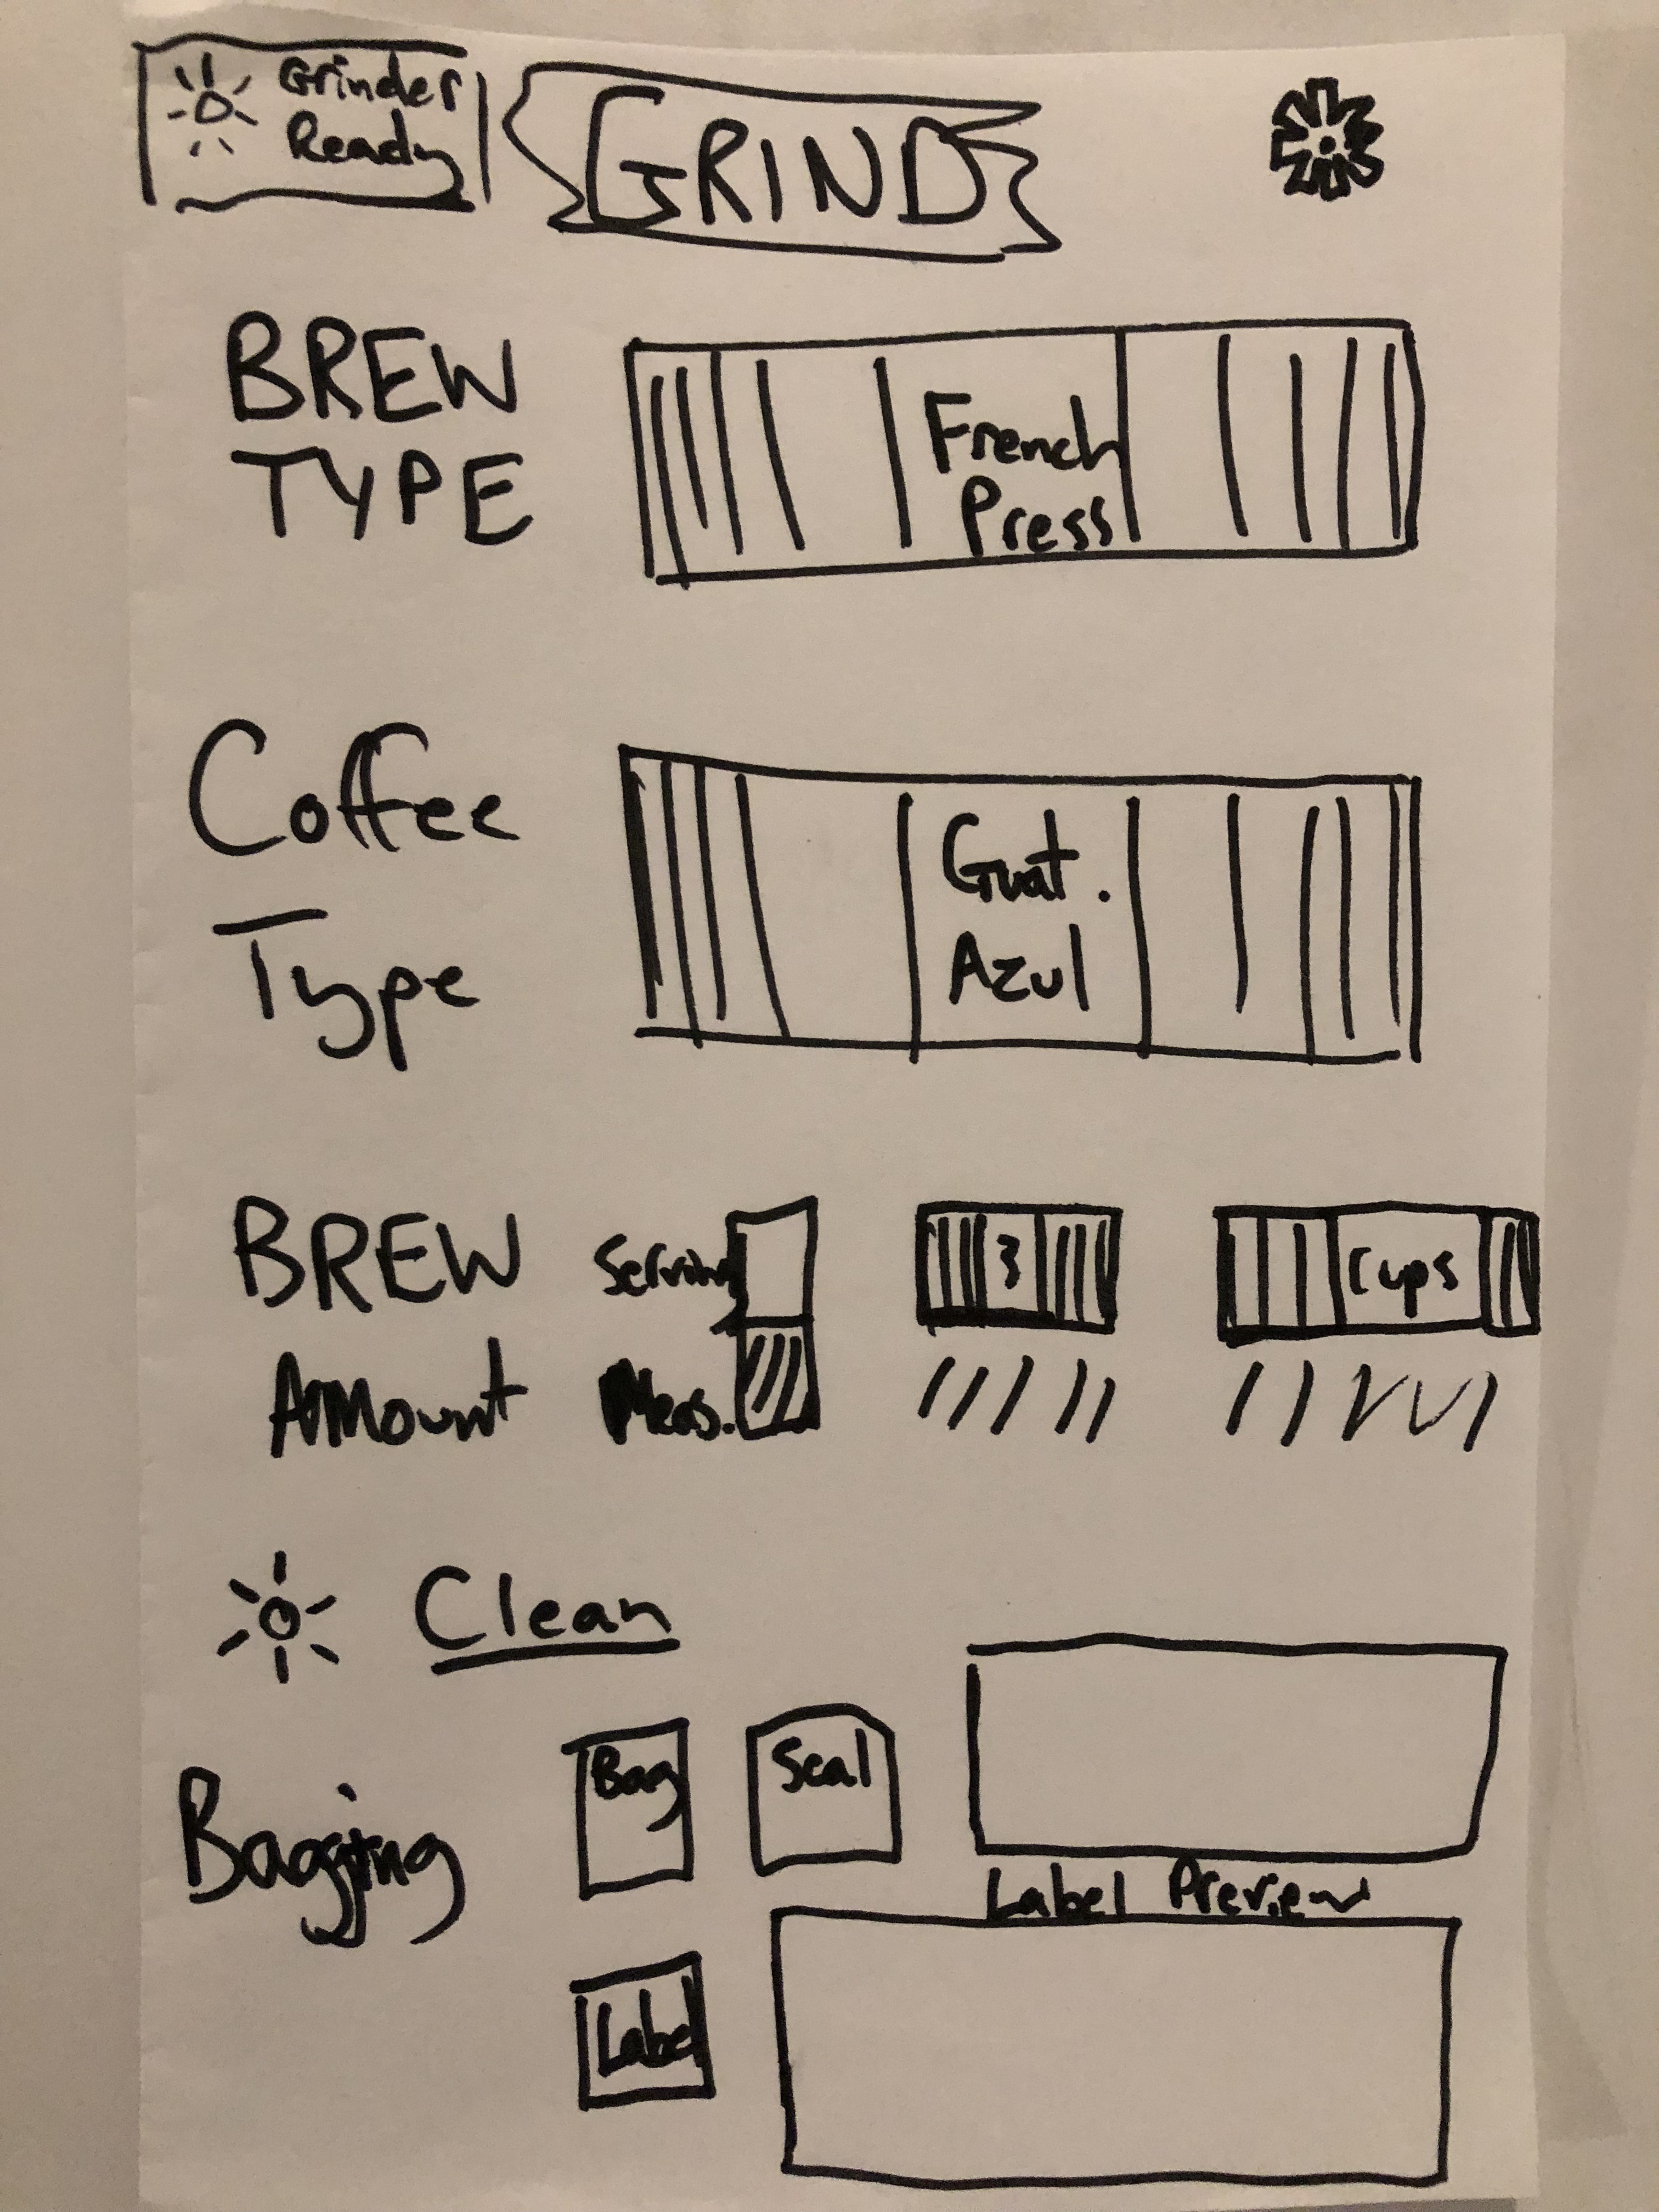 Grinder
Ready
GRIND
BREW
TYPE
French
Press
Coffee
Type
Guat.
Azul
BREW
Amount
Serving
Meas.
3
Cups
Clean
Bagging
Bag
Seal
Label Preview
Label